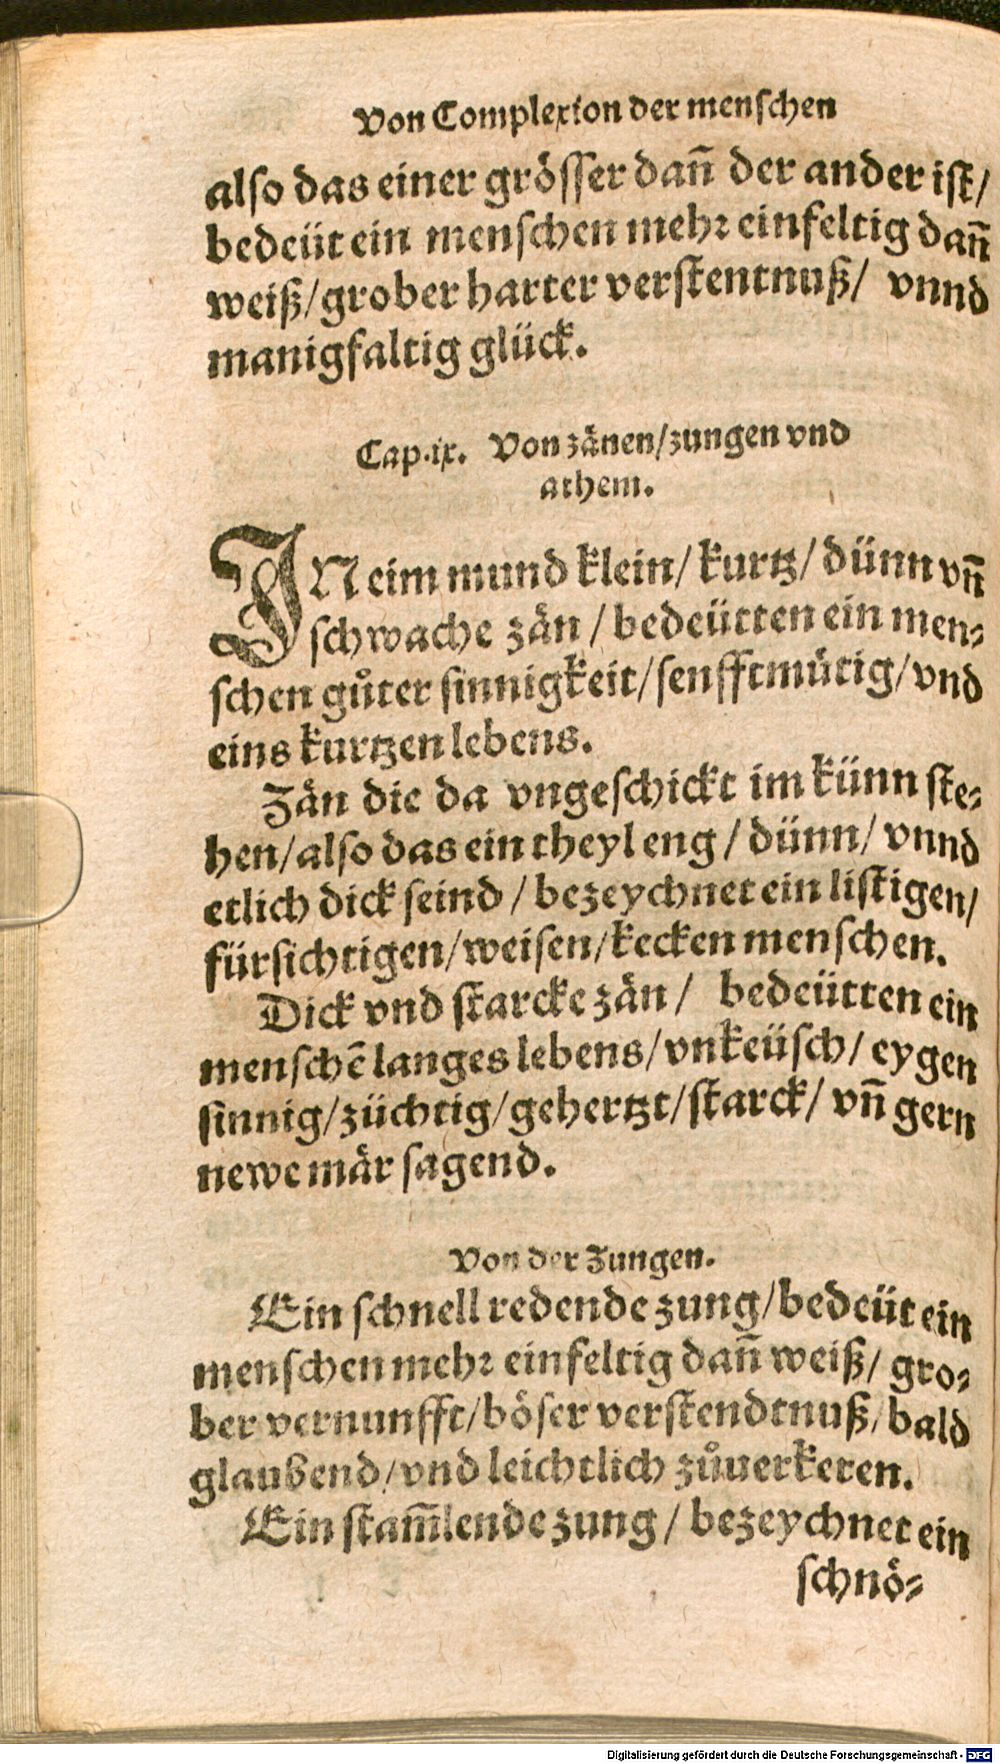 Von Complexion der menſchen
alſo das einer gröſſer dañ der ander iſt/
bedeüt ein menſchen mehr einfeltig dañ
weiß/grober harter verſtentnuß/ vnnd
manigfaltig glück.
Cap.ix. Von zänen/zungen vnd
athem.
JN eim mund klein/kurtz/dünn vñ
ſchwache zän/bedeütten ein men⸗
ſchen gůter ſinnigkeit/ſenfftmütig/vnd
eins kurtzen lebens.
Zän die da vngeſchickt im künn ſte⸗
hen/alſo das ein theyl eng/dünn/vnnd
etlich dick ſeind/bezeychnet ein liſtigen/
fürſichtigen/weiſen/kecken menſchen.
Dick vnd ſtarcke zän/ bedeütten ein
menſchē langes lebens/vnkeüſch/eygen
ſinnig/züchtig/gehertzt/ſtarck/vñ gern
newe mär ſagend.
Von der Zungen.
Ein ſchnell redende zung/bedeüt ein
menſchen mehr einfeltig dañ weiß/gro⸗
ber vernunfft/böſer verſtendtnuß/bald
glaubend/vnd leichtlich zůuerkeren.
Ein ſtam̃lende zung/bezeychnet ein
ſchnö⸗
Digitalisierung gefördert durch die Deutsche Forschungsgemeinschaft - DFG